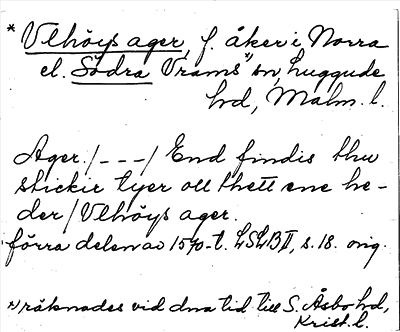 * Vlhöys ager, f. åker i Norra
el. Södra Vrams *) sn, Luggude
hd, Malm. l.
Ager /---/ End findis thu
stickir tyer oll thett ene he-
der / Vlhöys ager.
förra delen av 1570-t. LSLB II, s. 18. orig.
*) räknades vid dna tid till S. Åsbo hd,
Krist. l.